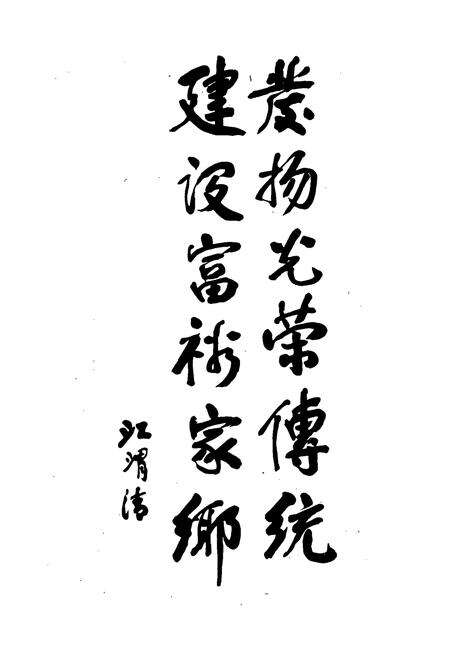 發扬光荣傳统
建设富裕家鄉
江渭清